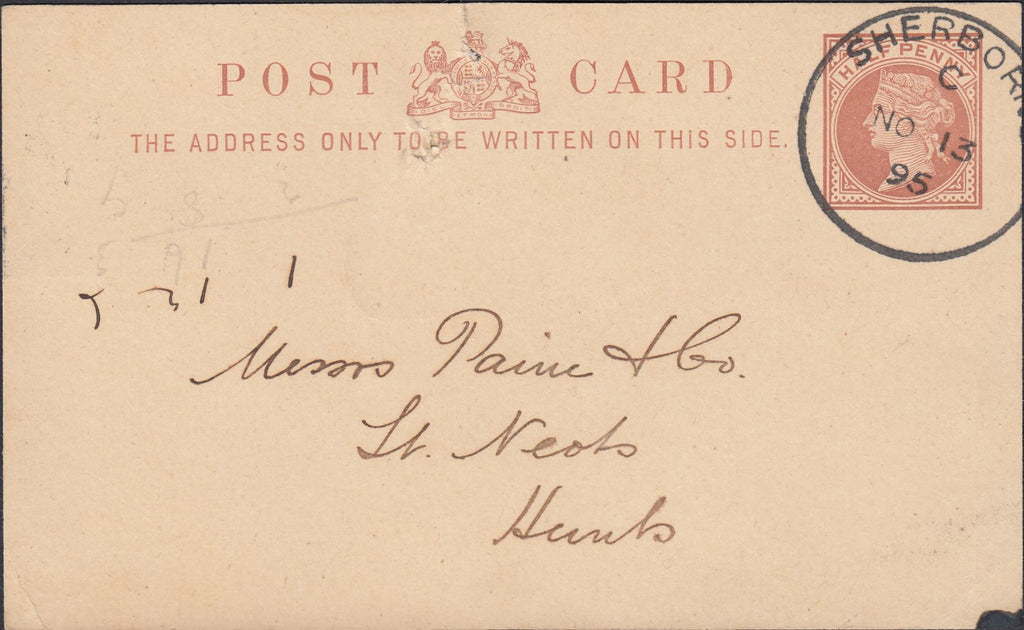 POST CARD
THE ADDRESS ONLY TO BE WRITTEN ON THIS SIDE.
HALF PENNY
SHERBORN
C
NO 13
95
Messrs Paine & Co.
St. Neots
Hunts